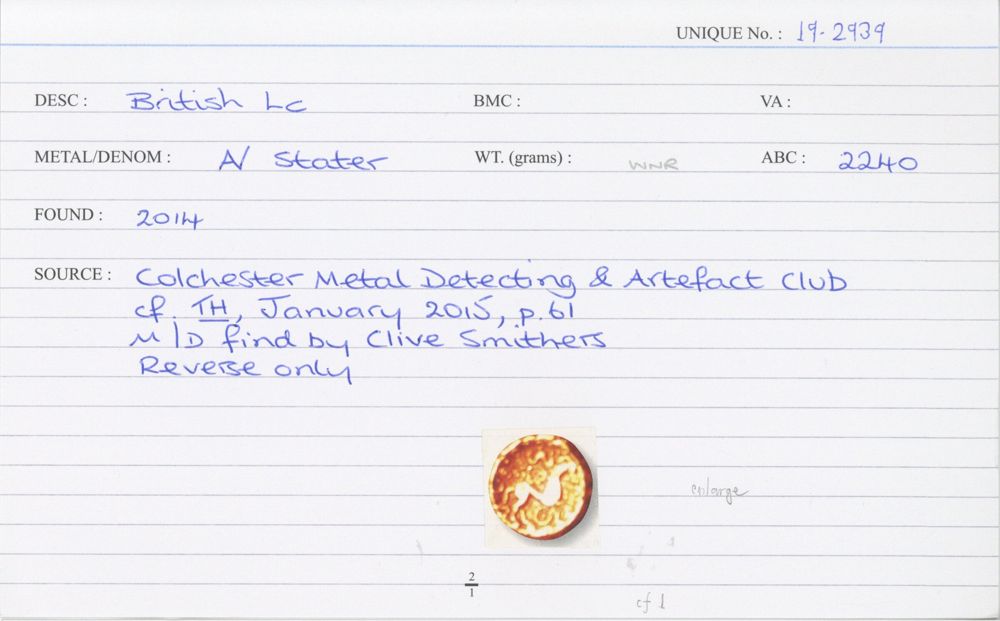 UNIQUE No. : 19-2939
DESC : British Lc BMC : VA :
METAL/DENOM : A/ Stater WT. (grams) : WNR ABC : 2240
FOUND : 2014
SOURCE : Colchester Metal Detecting & Artefact Club
cf. TH, January 2015, p.61
M/D find by Clive Smithers
Reverse only
enlarge
2
1
cf 1